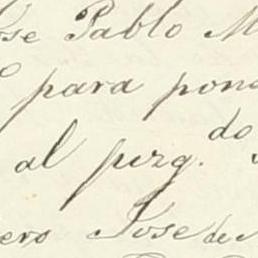 Jose Pablo M
para pon
al juzg.do
ero Jose de